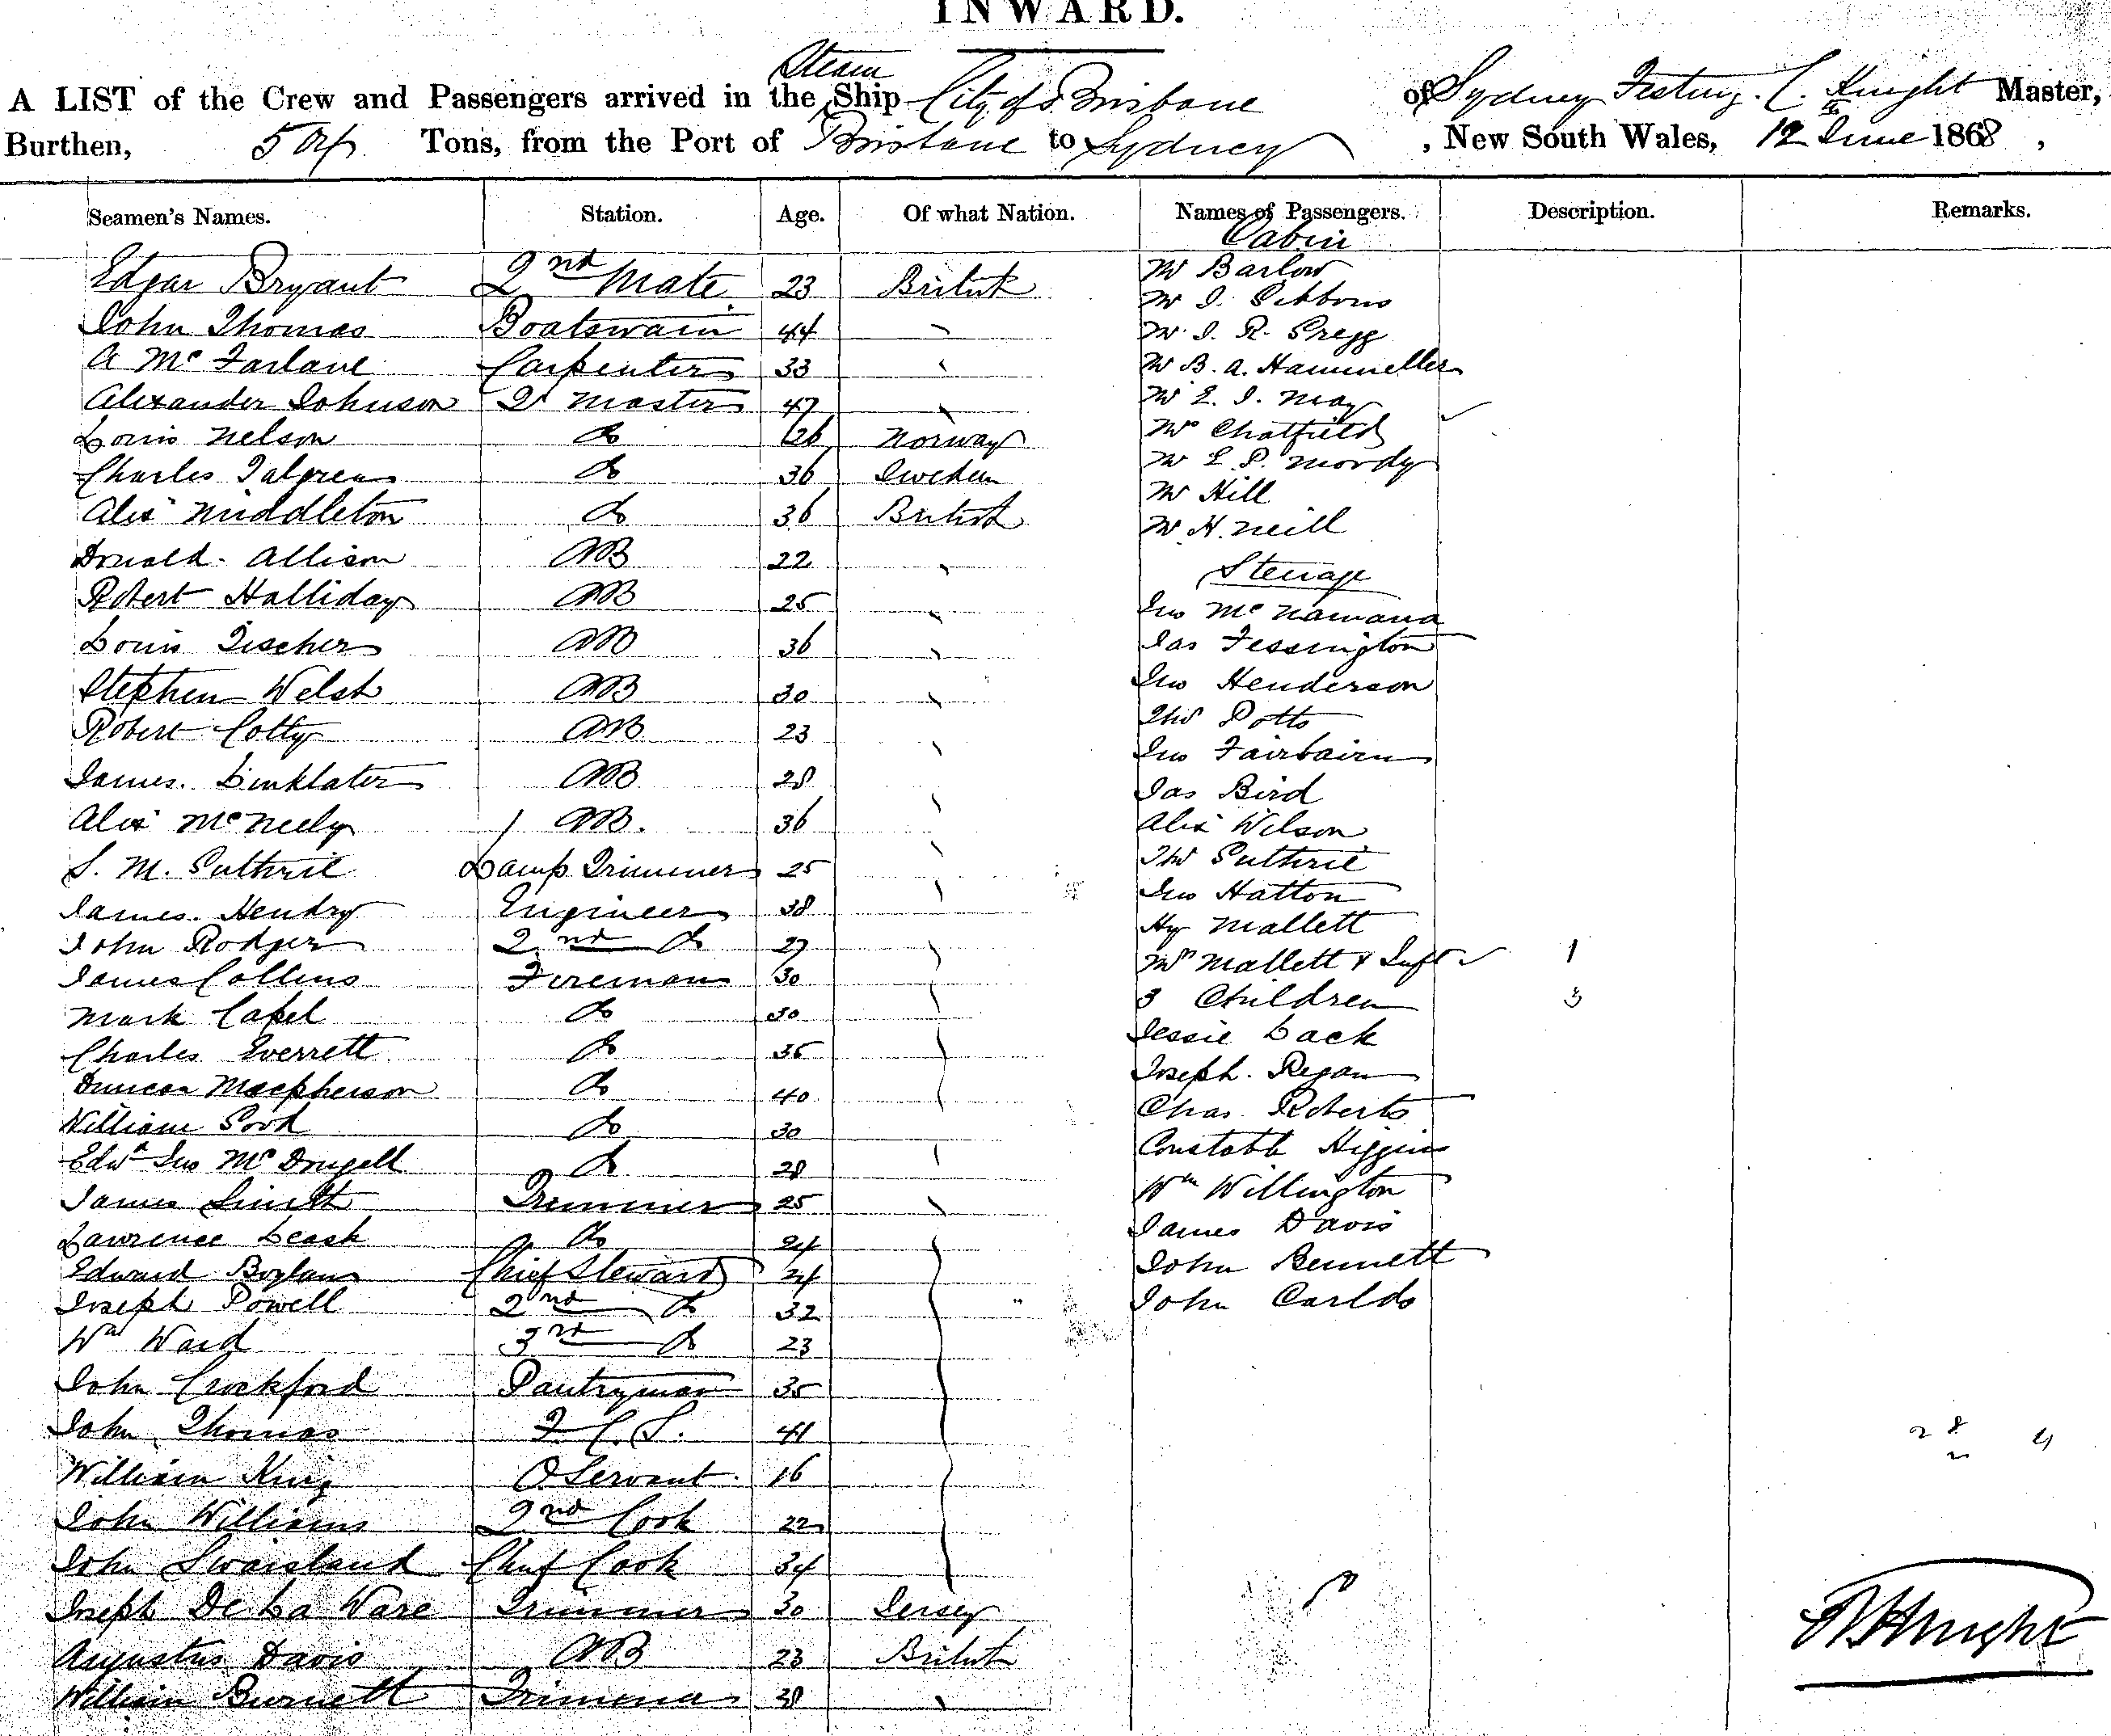 INWARD.
A LIST of the Crew and Passengers arrived in the Steam Ship City of Brisbane of Sydney Knight Master,
Burthen, 504 Tons, from the Port of Brisbane to Sydney, New South Wales, 12th June 1868,
Seamen's Names. Station. Age. Of what Nation. Names of Passengers. Description. Remarks.
Cabin
Edgar Bryant 2nd Mate 23 British Mr Barlow
Mr J. Gibbons
John Thomas Boatswain 44 Mr J. R. Gregg
A McFarlane Carpenter 33 Mr B. A.
Alexander Johnson Qr Master 47 Mr E. J. May
Louis Nelson do 26 Norway Mrs Chatfield
Charles do 36 Sweden Mr L. P. Mordy
Alex Middleton do 36 British Mr Hill
Mr H. Neill
Donald Allison AB 22 Steerage
Robert Halliday AB 25 Jno McNamara
Louis Tischer AB 36 Jas Fessington
Stephen Welsh AB 30 Jno Henderson
Robert Colty AB 23 Thos Potts
Jno Fairbairn
James Linklater AB 28 Jas Bird
Alex McNeely AB. 36 Alex Wilson
S. M. Guthrie Lamp Trimmer 25 Thos Guthrie
James Hendry Engineer 38 Jno Hatton
Hy Mallett
John Rodger 2nd do 27 Mrs Mallett & Inft 1
James Collins Fireman 30 3 Children 3
Mark Capel do 30 Jessie Lack
Charles Everrett do 35 Joseph Regan
Duncan Macpherson do 40 Chas Roberts
William Cook do 30 Constable Higgins
Edwd Jno McDougell do 28 Wm Willington
James Smith Trimmer 25 James Davis
Lawrence Leask do 24 John Bennett
Edward Boylan Chief Steward 24 John Carldo
Joseph Powell 2nd do 32
Wm Ward 3rd do 23
John Crockford Pantryman 35
John Thomas F. C. S. 41
William King O Servant 16
John Williams 2nd Cook 22
John Swaisland Chief Cook 34
Joseph De La Ware Trimmer 30 Jersey
Augustus Davis AB 23 British
William Burnett Trimmer 38
Knight